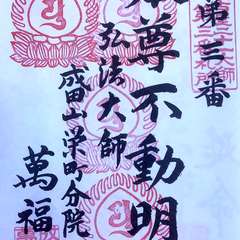 第三番
尊不動明
弘法大師
成田山栄町分院
萬福